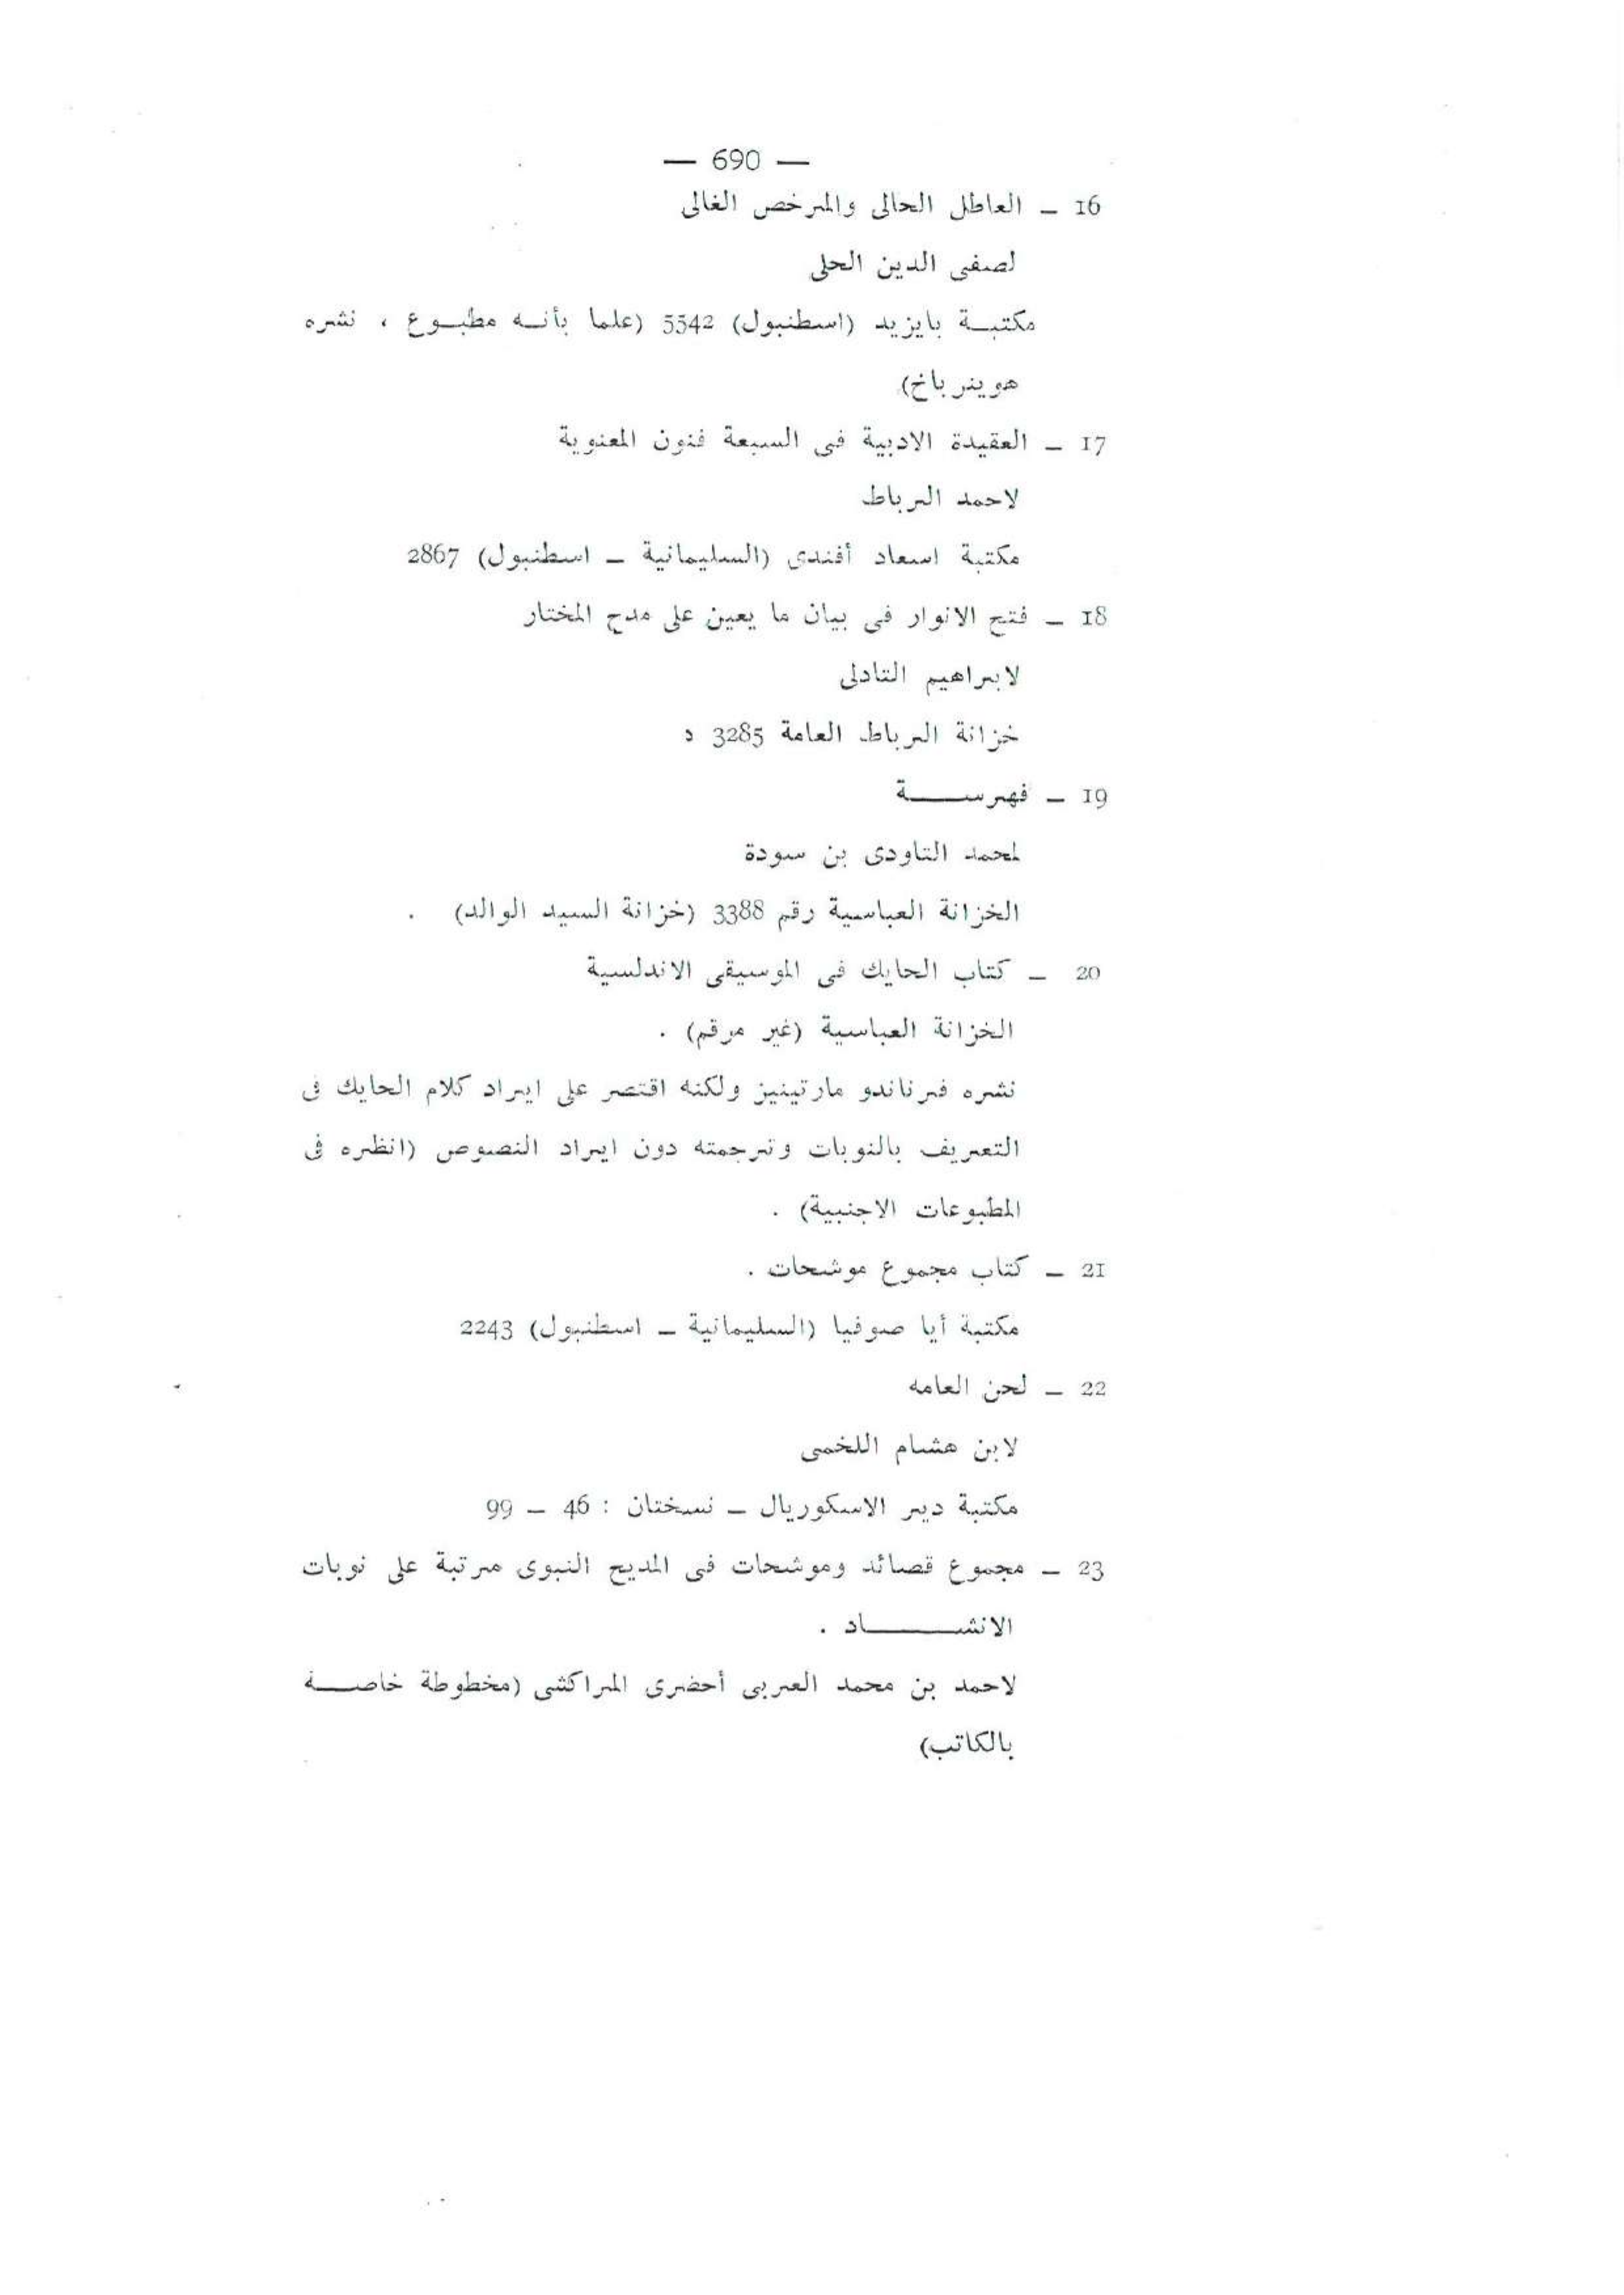 — 690 —
16 — العاطل الحالى والمرخص الغالى
لصفى الدين الحلى
مكتبة بايزيد (اسطنبول) 5542 (علما بأنه مطبوع ، نشره
هوينرباخ)
17 — العقيدة الادبية فى السبعة فنون المعنوية
لاحمد الرباط
مكتبة اسعاد أفندى (السليمانية — اسطنبول) 2867
18 — فتح الانوار فى بيان ما يعين على مدح المختار
لابراهيم التادلى
خزانة الرباط العامة 3285 د
19 — فهرسة
لمحمد التاودى بن سودة
الخزانة العباسية رقم 3388 (خزانة السيد الوالد) .
20 — كتاب الحايك فى الموسيقى الاندلسية
الخزانة العباسية (غير مرقم) .
نشره فرناندو مارتينيز ولكنه اقتصر على ايراد كلام الحايك فى
التعريف بالنوبات وترجمته دون ايراد النصوص (انظره فى
المطبوعات الاجنبية) .
21 — كتاب مجموع موشحات .
مكتبة أيا صوفيا (السليمانية — اسطنبول) 2243
22 — لحن العامه
لابن هشام اللخمى
مكتبة دير الاسكوريال — نسختان : 46 — 99
23 — مجموع قصائد وموشحات فى المديح النبوى مرتبة على نوبات
الانشاد .
لاحمد بن محمد العربى أحضرى المراكشى (مخطوطة خاصة
بالكاتب)